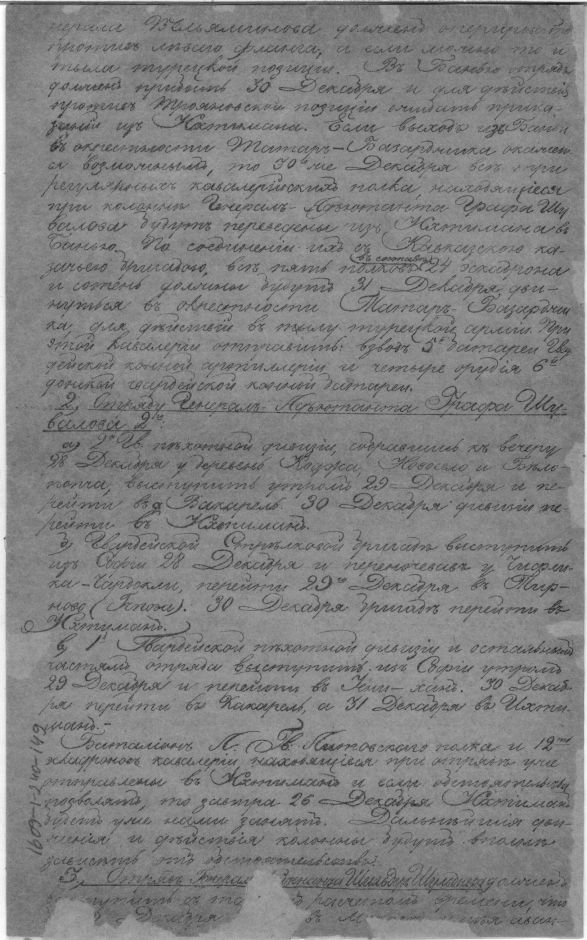 нерала Вельяминова долженъ оперировать
противъ лѣваго фланга, а если можно то и
тыла турецкой позиціи. Въ Банью отрядъ
долженъ прибыть 30 Декабря и для дѣйствій
противъ Трояновской позиціи ожидать прика-
заній изъ Ихтимана. Если выходъ изъ Баньи
въ окрестности Татаръ-Базарджика окажет-
ся возможнымъ, то 30 же Декабря всѣ три
регулярныхъ кавалерійскихъ полка находящіеся
при колонны Генералъ-Адъютанта Графа Шу-
валова будутъ переведены изъ Ихтимана въ
Банью. По соединеніи ихъ съ Кавказскою ка-
зачьею бригадою, всѣ пять полковъ въ составѣ 24 эскадрона
и сотень должны будутъ 31 Декабря дви-
нуться въ окрестности Татаръ-Базарджи-
ка для дѣйствій въ тылу турецкой арміи. При
этой кавалеріи отправить: взводъ 5й батареи Гвар-
дейской конной артиллеріи и четыре орудія 6й
донской гвардейской конной батареи.
2, Отряду Генералъ-Адъютанта Графа Шу-
валова 2го:
а) 2й Гв. пѣхотной дивизіи, собравшись къ вечеру
28 Декабря у деревень Новосело и
выступить утромъ 29 Декабря и пе-
рейти въ д. Вакарель. 30 Декабря дивизіи пе-
рейти въ Ихтиманъ.
б) Гвардейской Стрѣлковой бригадѣ выступить
изъ Софіи 28 Декабря и переночевавъ у Чифли-
ка-Чардакли, перейти 29го Декабря въ
ново 30 Декабря бригадѣ перейти въ
Ихтиманъ.
в) 1й Гвардейской пѣхотной дивизіи и остальнымъ
частямъ отряда выступить изъ Софіи утромъ
29 Декабря и перейти въ Іени-ханъ. 30 Декаб-
ря перейти въ Вакарель, а 31 Декабря въ Ихти-
манъ.-
Баталіонъ Л. Гв. Литовскаго полка и 12ть
эскадроновъ кавалеріи находящіеся при отрядѣ уже
отправлены въ Ихтиманъ и если обстоятельства
позволятъ, то завтра 26 Декабря Ихтиманъ
будетъ уже нами занятъ. Дальнѣйшія дви-
женія и дѣйствія колонны будутъ вполнѣ
зависѣть отъ обстоятельствъ.
3, Отрядъ Генерала долженъ
выступить съ разсчетомъ времени, что
Декабря въ аван-
1609-1-240-149